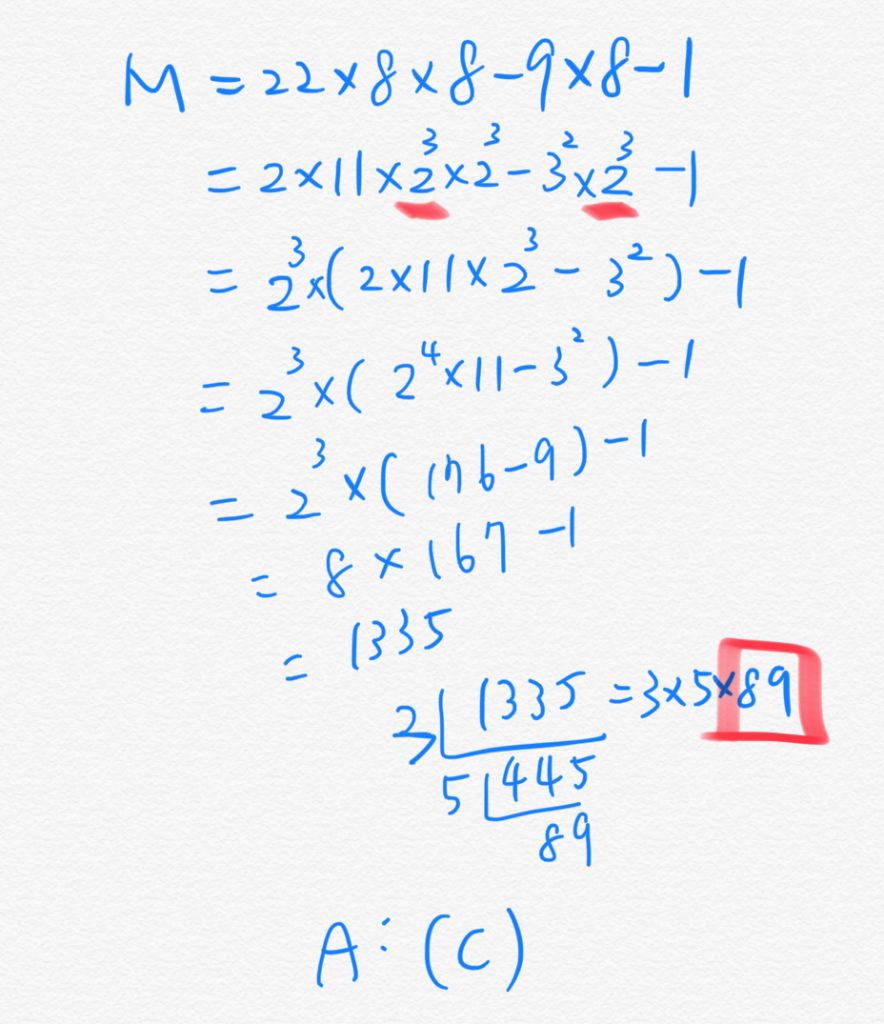 M = 22×8×8-9×8-1
= 2×11×2³×2³-3²×2³-1
= 2³×(2×11×2³-3²)-1
= 2³×(2⁴×11-3²)-1
= 2³×(176-9)-1
= 8×167-1
= 1335
3 1335 =3×5×89
5 445
89
A:(C)